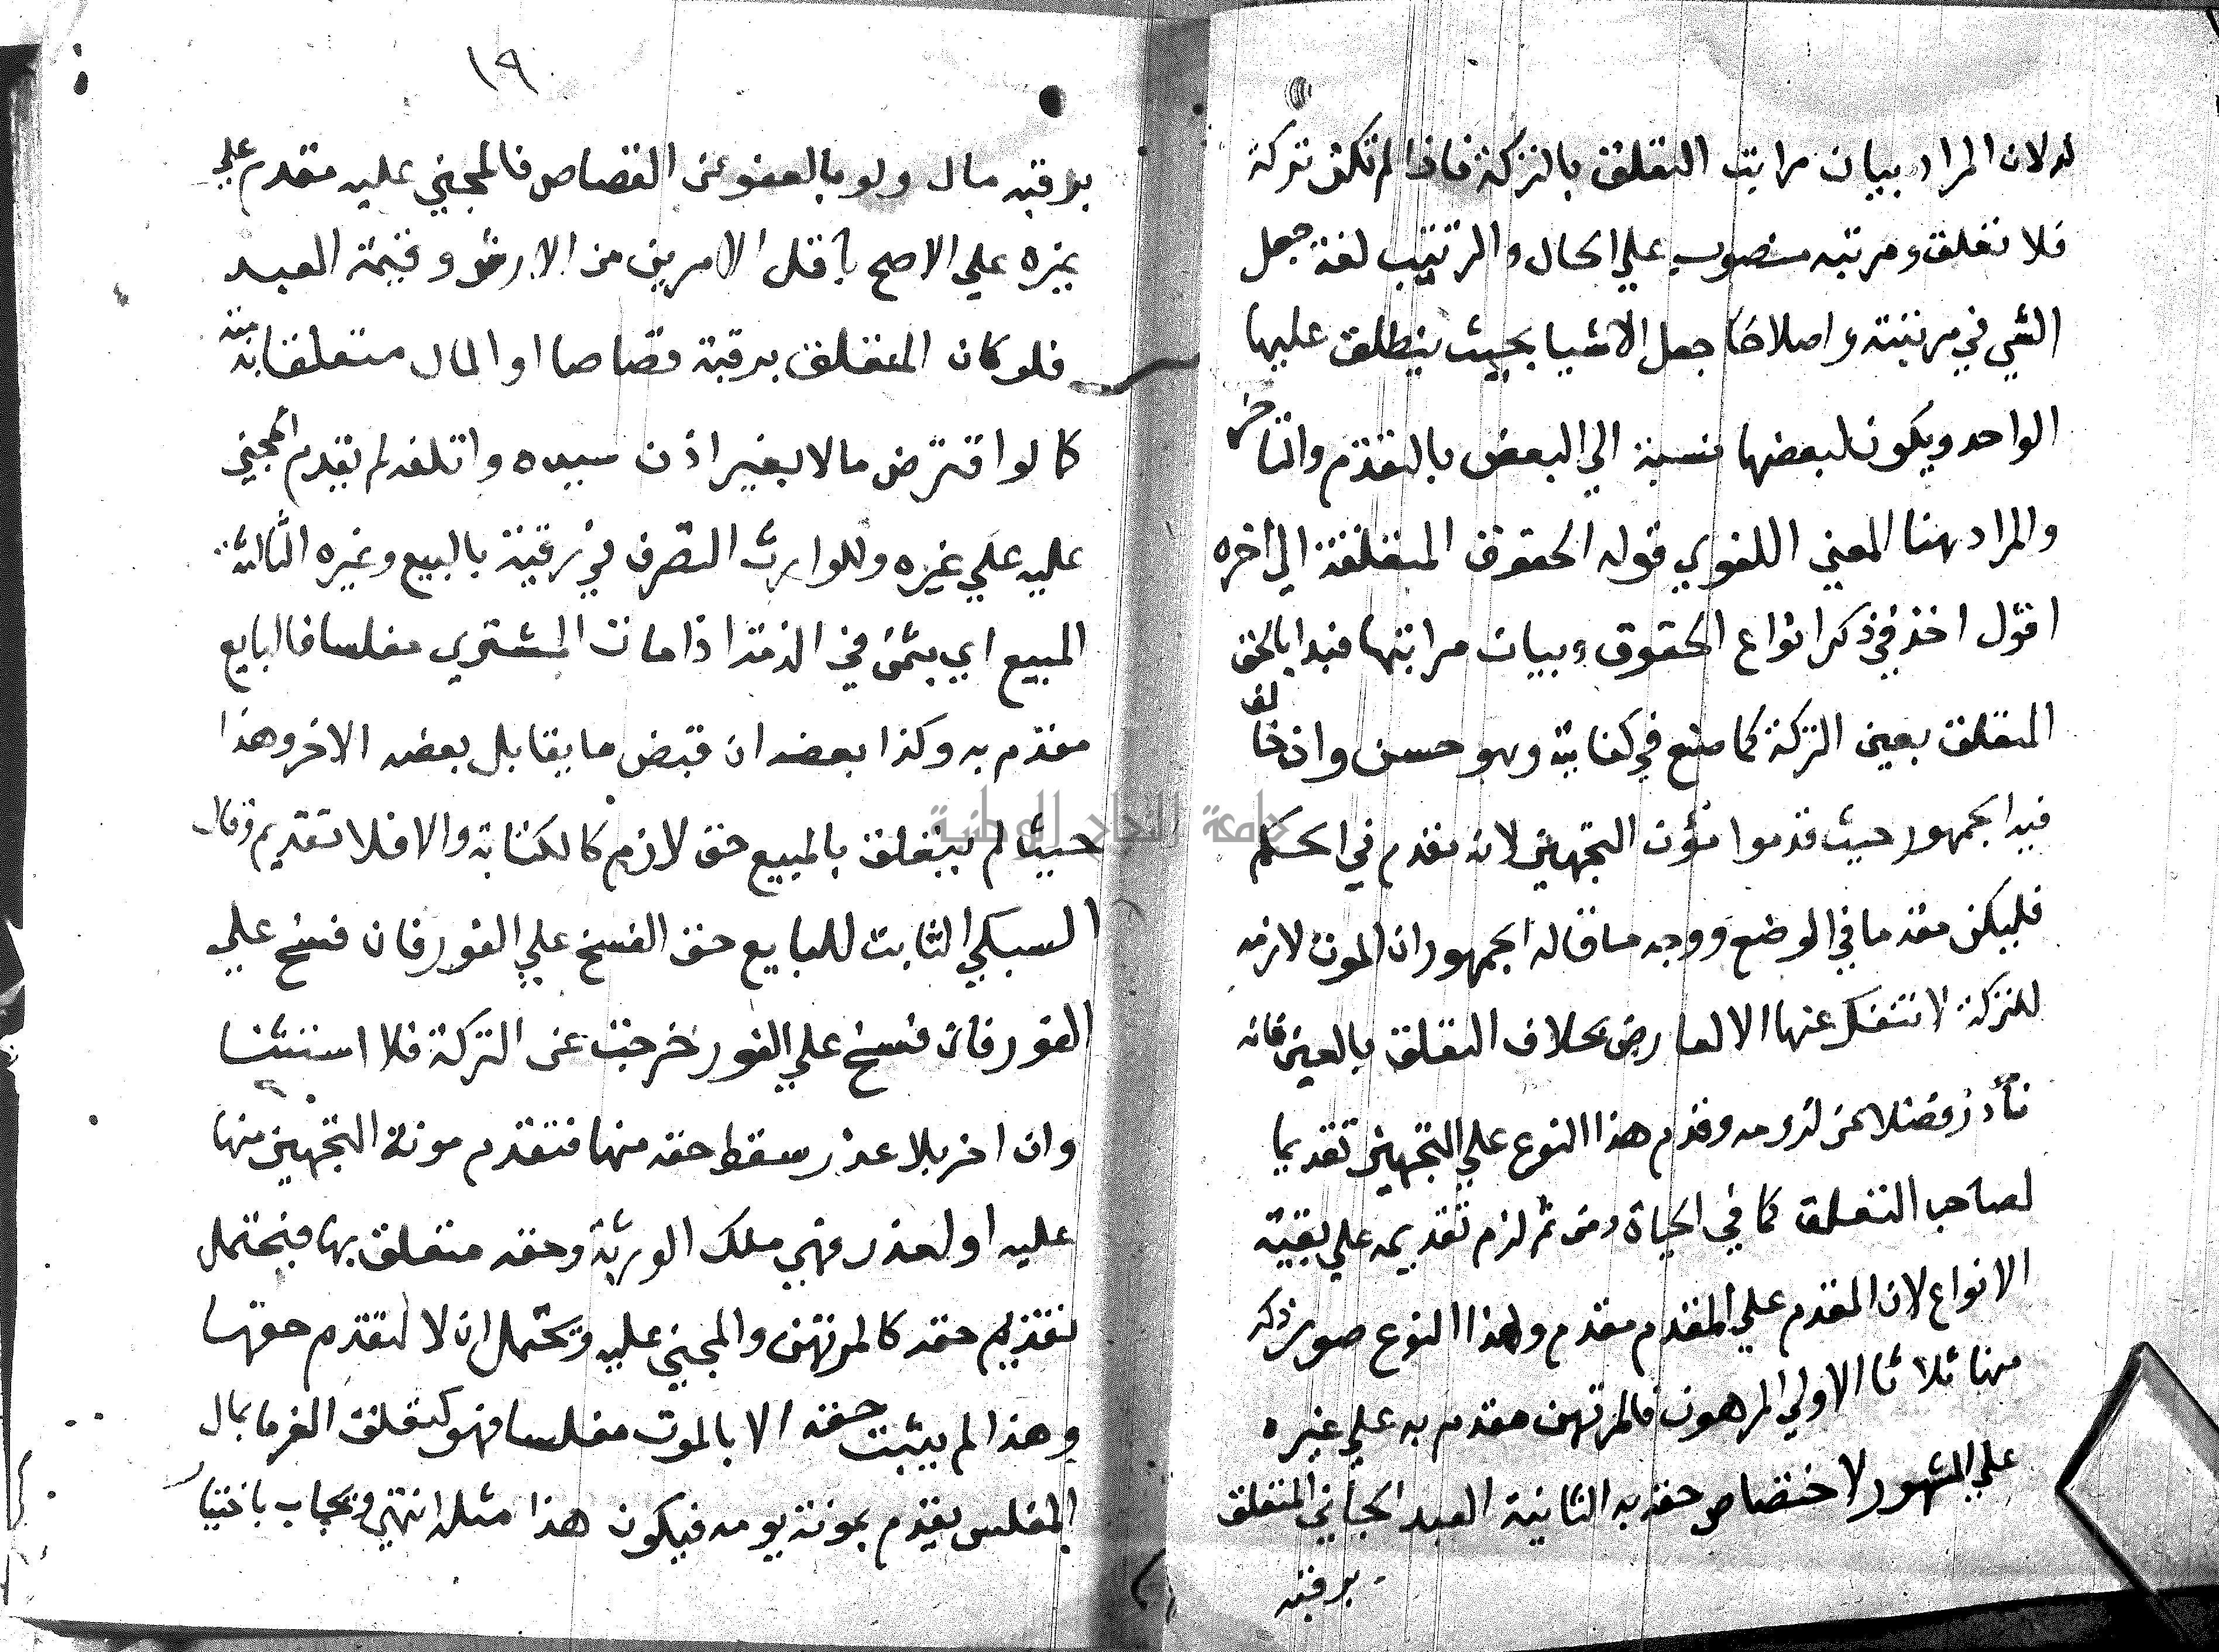 له لان المراد ببيان مراتب التعلق بالتركة فاذا لم تكن تركة
فلا تعلق ومرتبه منصوب علي الحال والترتيب لغة جعل
الشي في مرتبته واصلاحا جعل الاشيا بحيث ينطلق عليها
الواحد ويكون لبعضها نسبة الي البعض بالتقدم والتاخر
والمراد هنا المعني اللغوي قوله الحقوق المتعلقة الي اخره
اقول اخذ في ذكر انواع الحقوق وبيان مراتبها فبدا بالحق
المتعلق بعين التركة كما صنع في كفايته وهو حسن وان خالف
فيه الجمهور حيث قدموا مؤن التجهيز لانه مقدم في الحكم
فليكن مقدما في الوضع ووجه ما قاله الجمهور ان المون لازمه
للتركة لا تنفك عنها الا لعارض بخلاف التعلق بالعين فانه
نادر فضلا عن لزومه وقدم هذا النوع علي التجهيز تقديما
لصاحب التعلق كما في الحياة ومن ثم لزم تقديمه علي بقية
الانواع لان المقدم علي المقدم مقدم ولهذا النوع صور ذكر
منها ثلاثا الاولي المرهون فالمرتهن مقدم به علي غيره
علي المشهور لاختصاص حقه به الثانية العبد الجاني المتعلق
برقبته
١٩
برقبته مال ولو بالعفو عن القصاص فالمجني عليه مقدم علي
غيره علي الاصح باقل الامرين من الارش وقيمة العبد
فلو كان المتعلق برقبة قصاصا او المال متعلقا بذمته
كما لو اقترض مالا بغير اذن سيده واتلفه لم يقدم المجني
عليه علي غيره وللوارث التصرف في رقبته بالبيع وغيره الثالثة
المبيع اي بثمن في الذمة اذا مات المشتري مفلسا فالبايع
مقدم به وكذا بعضه ان قبض ما يقابل بعضه الاخر وهذا
حيث لم يتعلق بالمبيع حق لازم كالكتابة والا فلا تقديم وقال
السبكي الثابت للبايع حق الفسخ علي الفور فان فسخ علي
الفور فان فسخ علي الفور خرجت عن التركة فلا استثنا
وان اخر بلا عذر سقط حقه منها فتقدم مونة التجهيز منها
عليه او لعذر فهي ملك الورثة وحقه متعلق بها فيحتمل
تقديم حقه كالمرتهن والمجني عليه ويحتمل ان لا لتقدم حقهما
وهذا لم يثبت حقه الا بالموت مفلسا فهو كتعلق الغرما بمال
المفلس يقدم بمونة يومه فيكون هذا مثله انتهي ويجاب باختيار
جامعة النجاح الوطنية